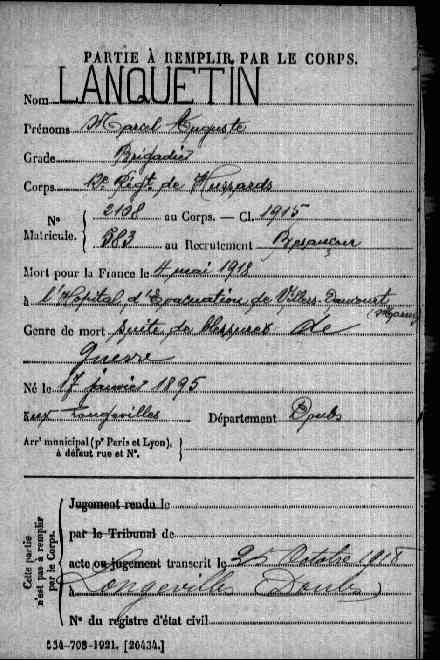 PARTIE À REMPLIR PAR LE CORPS.
Nom LANQUETIN
Prénoms Marcel Auguste
Grade Brigadier
Corps 12e Régt de Hussards
Nº 2108 au Corps. — Cl. 1915
Matricule. 883 au Recrutement Besançon
Mort pour la France le 4 mai 1918
à l'Hôpital d'Evacuation de Villers-Daucourt (Marne)
Genre de mort suite de blessures de
Guerre
Né le 17 janvier 1895
aux Longevilles Département Doubs
Arrt municipal (pr Paris et Lyon),
à défaut rue et Nº.
Cette partie
n'est pas à remplir
par le Corps.
Jugement rendu le
par le Tribunal de
acte ou jugement transcrit le 25 Octobre 1918
à Longeville Doubs
Nº du registre d'état civil
534-708-1921. [26434.]